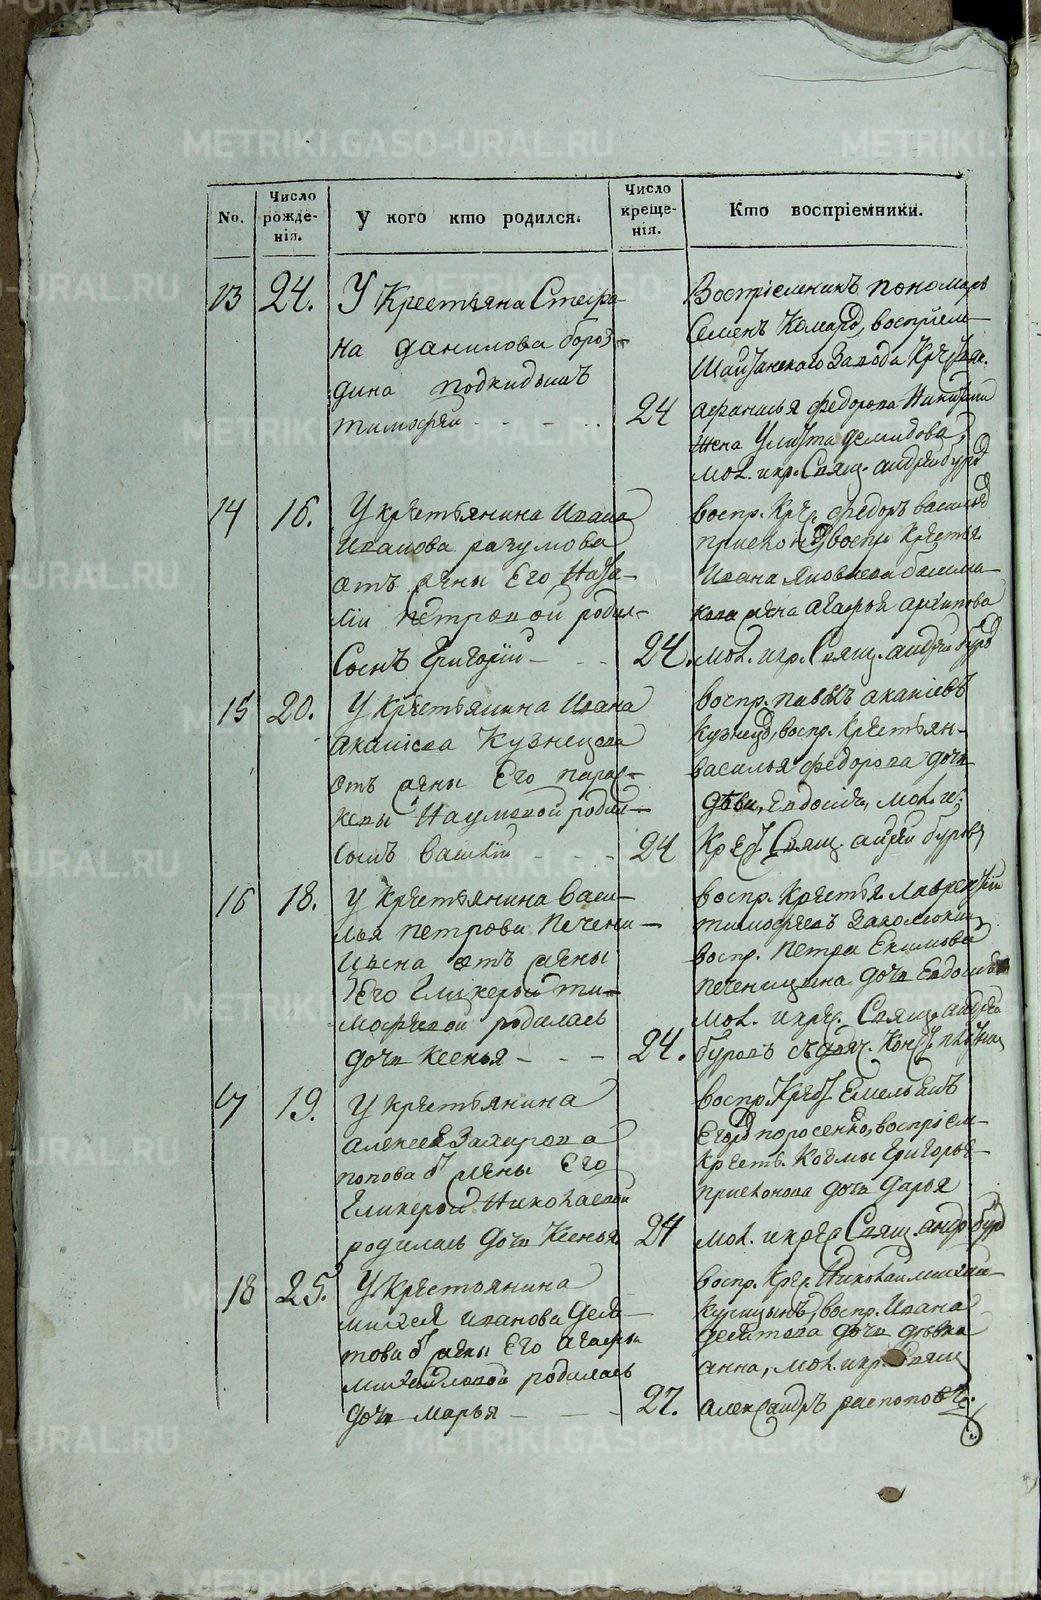 METRIKI.GASO-URAL.RU
No.
Число рожде-
нія.
У кого кто родился.
Число креще-
нія.
Кто воспріемники.
13 24.
У Крестьяна Стефа-
на данилова бороз-
дина подкидышъ
тимофей
24
Воспріемникъ пономарь
Семенъ Комаро, воспріем-
Шайтанскаго Завода
афанасья федорова Никит
жена Улита демидова,
мол. и кр. Свящ. андрей буро
14 16.
У крестьянина Ивана
Иванова разумова
отъ жены Его Ната-
ліи Петровой родил-
Сынъ Григорій
24.
воспр. Кре. федоръ василье
воспр. Кресть
Ивана Яковлева башма-
кова жена агафья архипова
мол. и кр. Свящ. андрей буро
15 20.
У крестьянина Ивана
акакіева Кузнецова
отъ жены Его парас-
кевы Наумовой родил-
сынъ Василій
24
воспр. павелъ акакіевъ
Кузнецо, воспр. Крестьян-
василья федорова дочь
дѣви, Евдокія, мол. и
Крес. Свящ. андрей буровъ
16 18.
У крестьянина Васи-
лья петрова Печени-
цына отъ жены
Его Гликерьи ти-
мофеевой родилась
дочь Ксенья
24.
воспр. Крестья Лаврентій
тимофеевъ
воспр. Петра Екимова
печеницына дочь Евдокія
мол. и кре. Свящ. андрей
буровъ съ
17 19.
У крестьянина
алексея Захарова
попова от жены Его
Гликерьи Николаевой
родилась дочь Ксенья
24
воспр. Крес. Емельянъ
Егоро поросенко, воспріем-
кресть. Козмы Григорье-
дочь дарья
мол. и кре. Свящ. андр. буро
18 25.
У Крестьянина
михея иванова деся-
това от жены Его агафьи
михайловой родилась
дочь марья
27.
воспр. Кре. Николай михай-
Курицынъ, воспр. Ивана
десятова дочь девка
анна, мол. и кр. Свящ
александръ распоповъ.